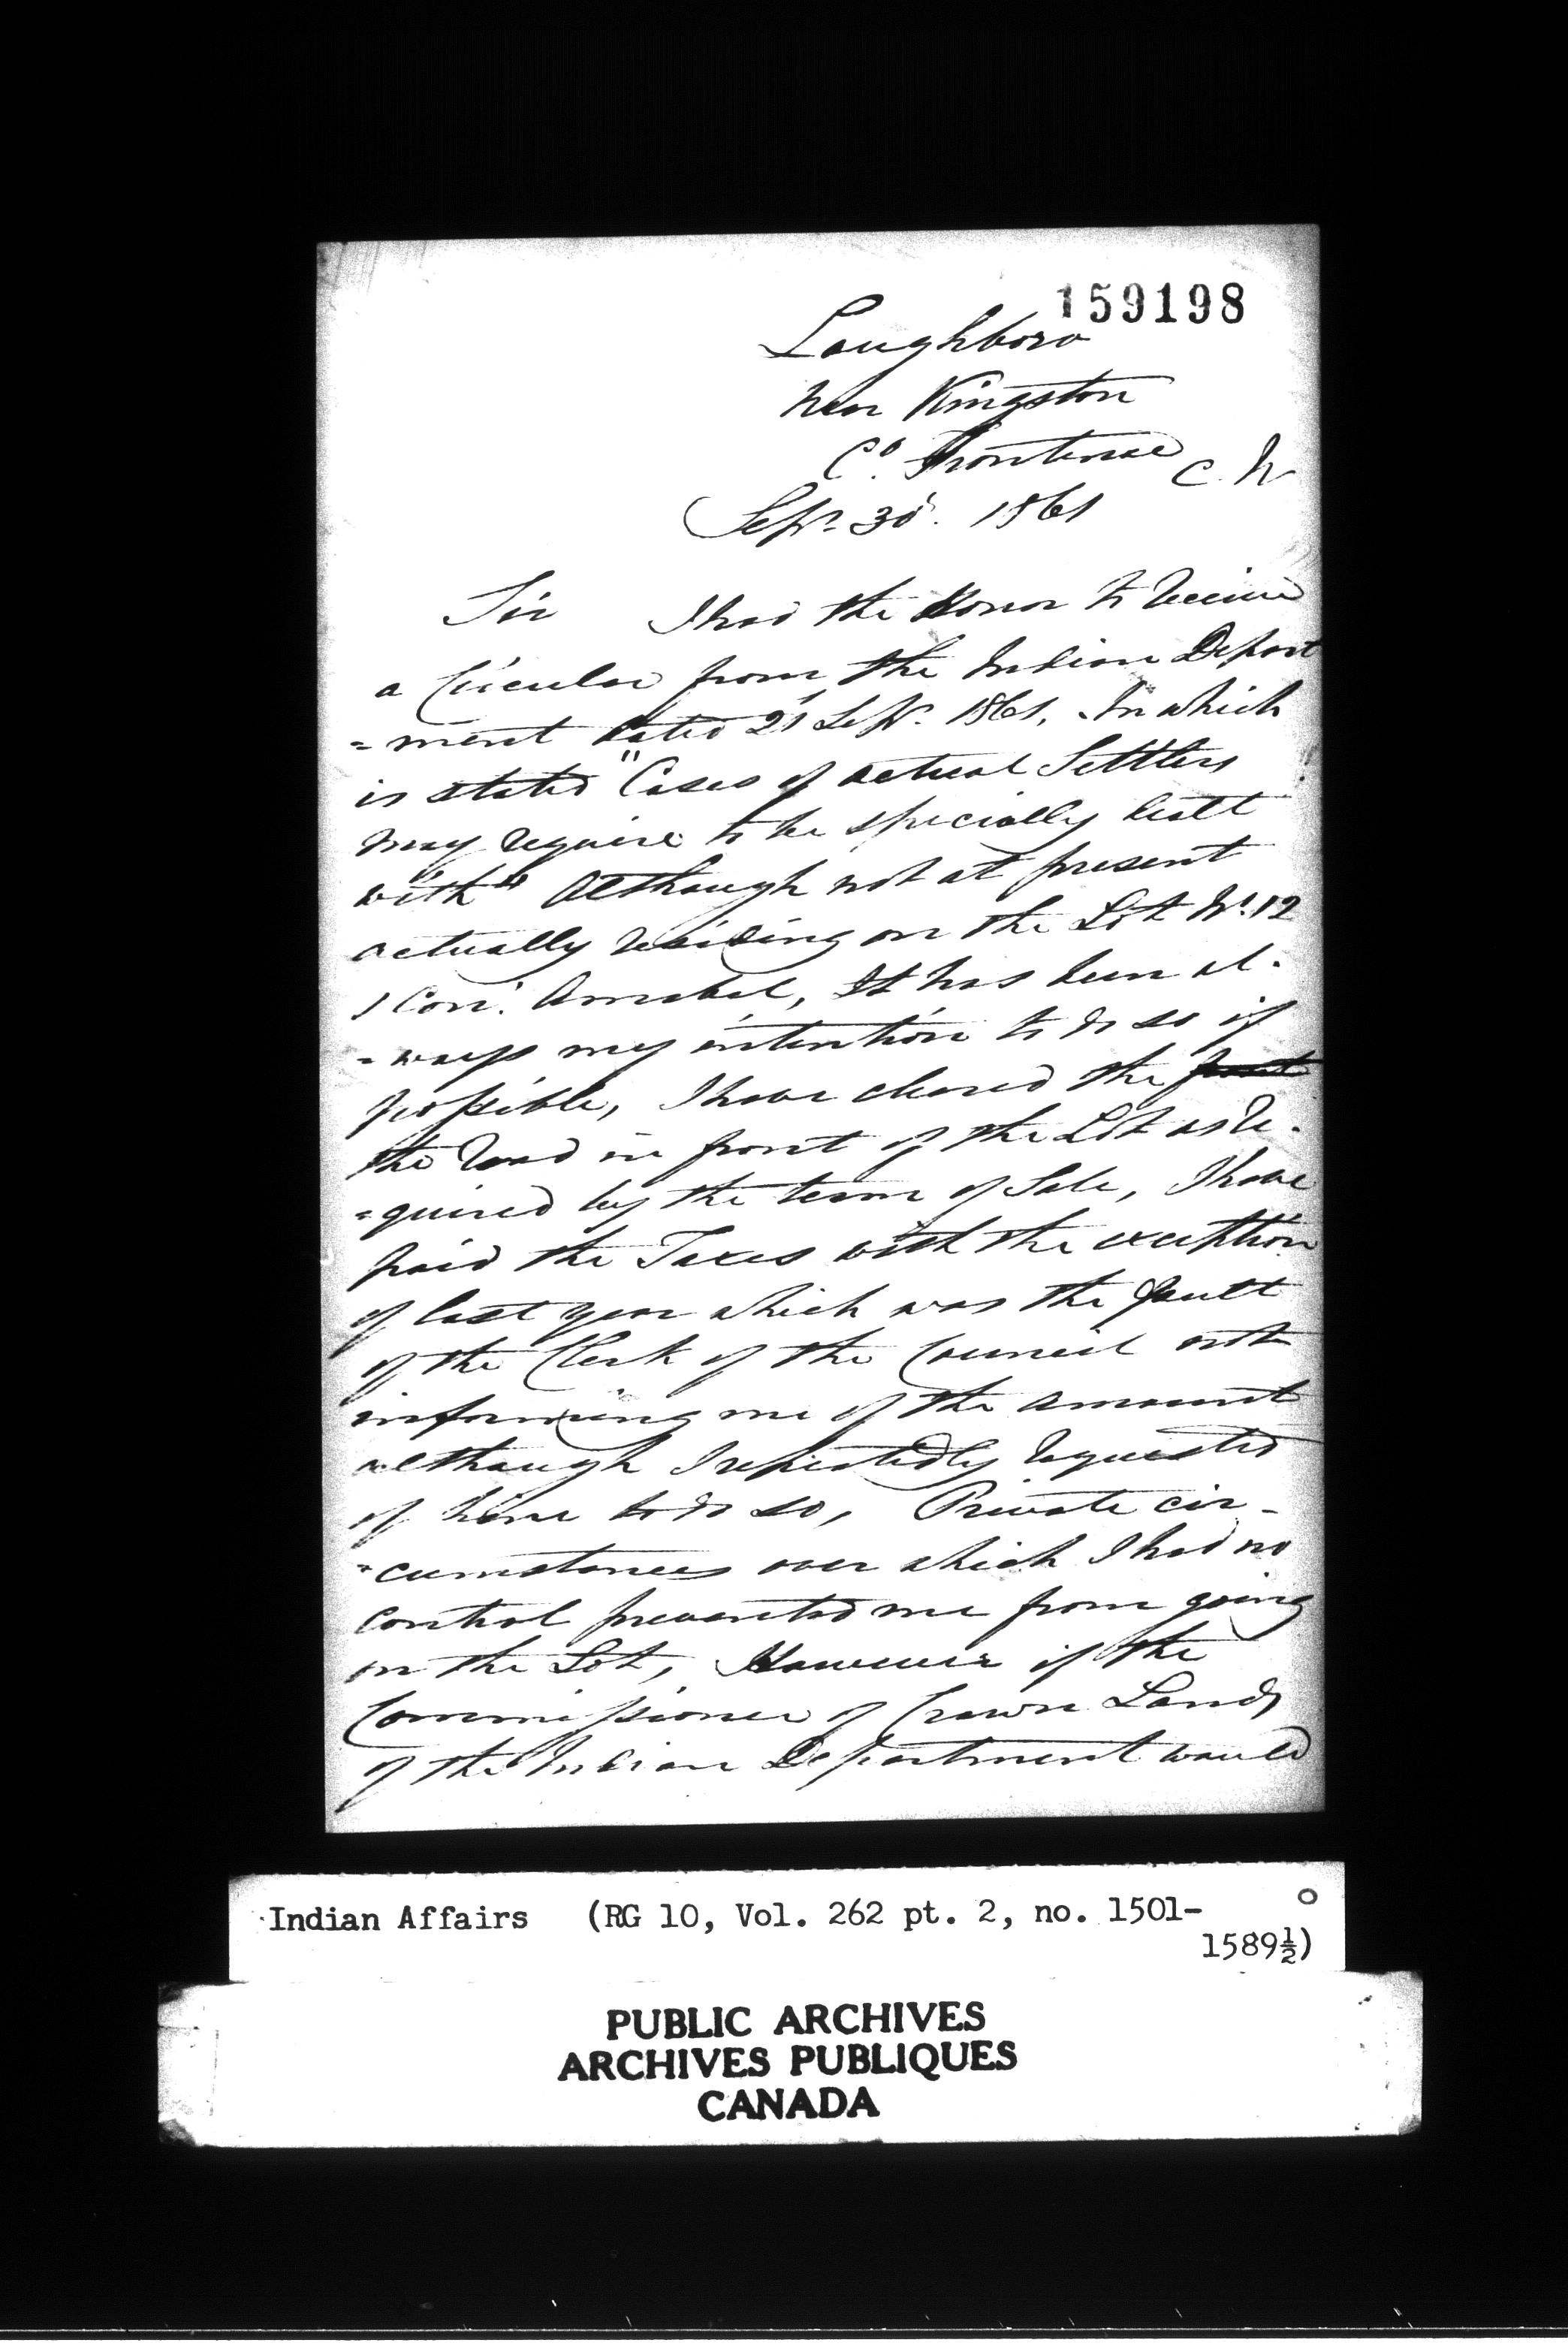 159198
Loughboro
Near Kingston
Co. Frontenac C. W
Sept. 30. 1861
Sir I had the Honor to receive
a Circular from the Indian Depart
=ment dated 21 Sept. 1861. In which
is stated "Cases of actual Settlers
may require to be specially dealt
with" Although not at present
actually residing on the Lot No. 12
1 Con. Amabel, It has been al-
=ways my intention to do so if
possible, I have cleared the front
the road in front of the Lot as re-
=quired by the terms of Sale, I have
paid the Taxes with the exception
of last year which was the fault
of the Clerk of the Council not
informing me of the amount
although I repeatedly requested
of him to do so, Private cir-
=cumstances over which I had no
control prevented me from going
on the Lot, However if the
Commissioner of Crown Lands
of the Indian Department would
Indian Affairs (RG 10, Vol. 262 pt. 2, no. 1501-
1589½)
PUBLIC ARCHIVES
ARCHIVES PUBLIQUES
CANADA